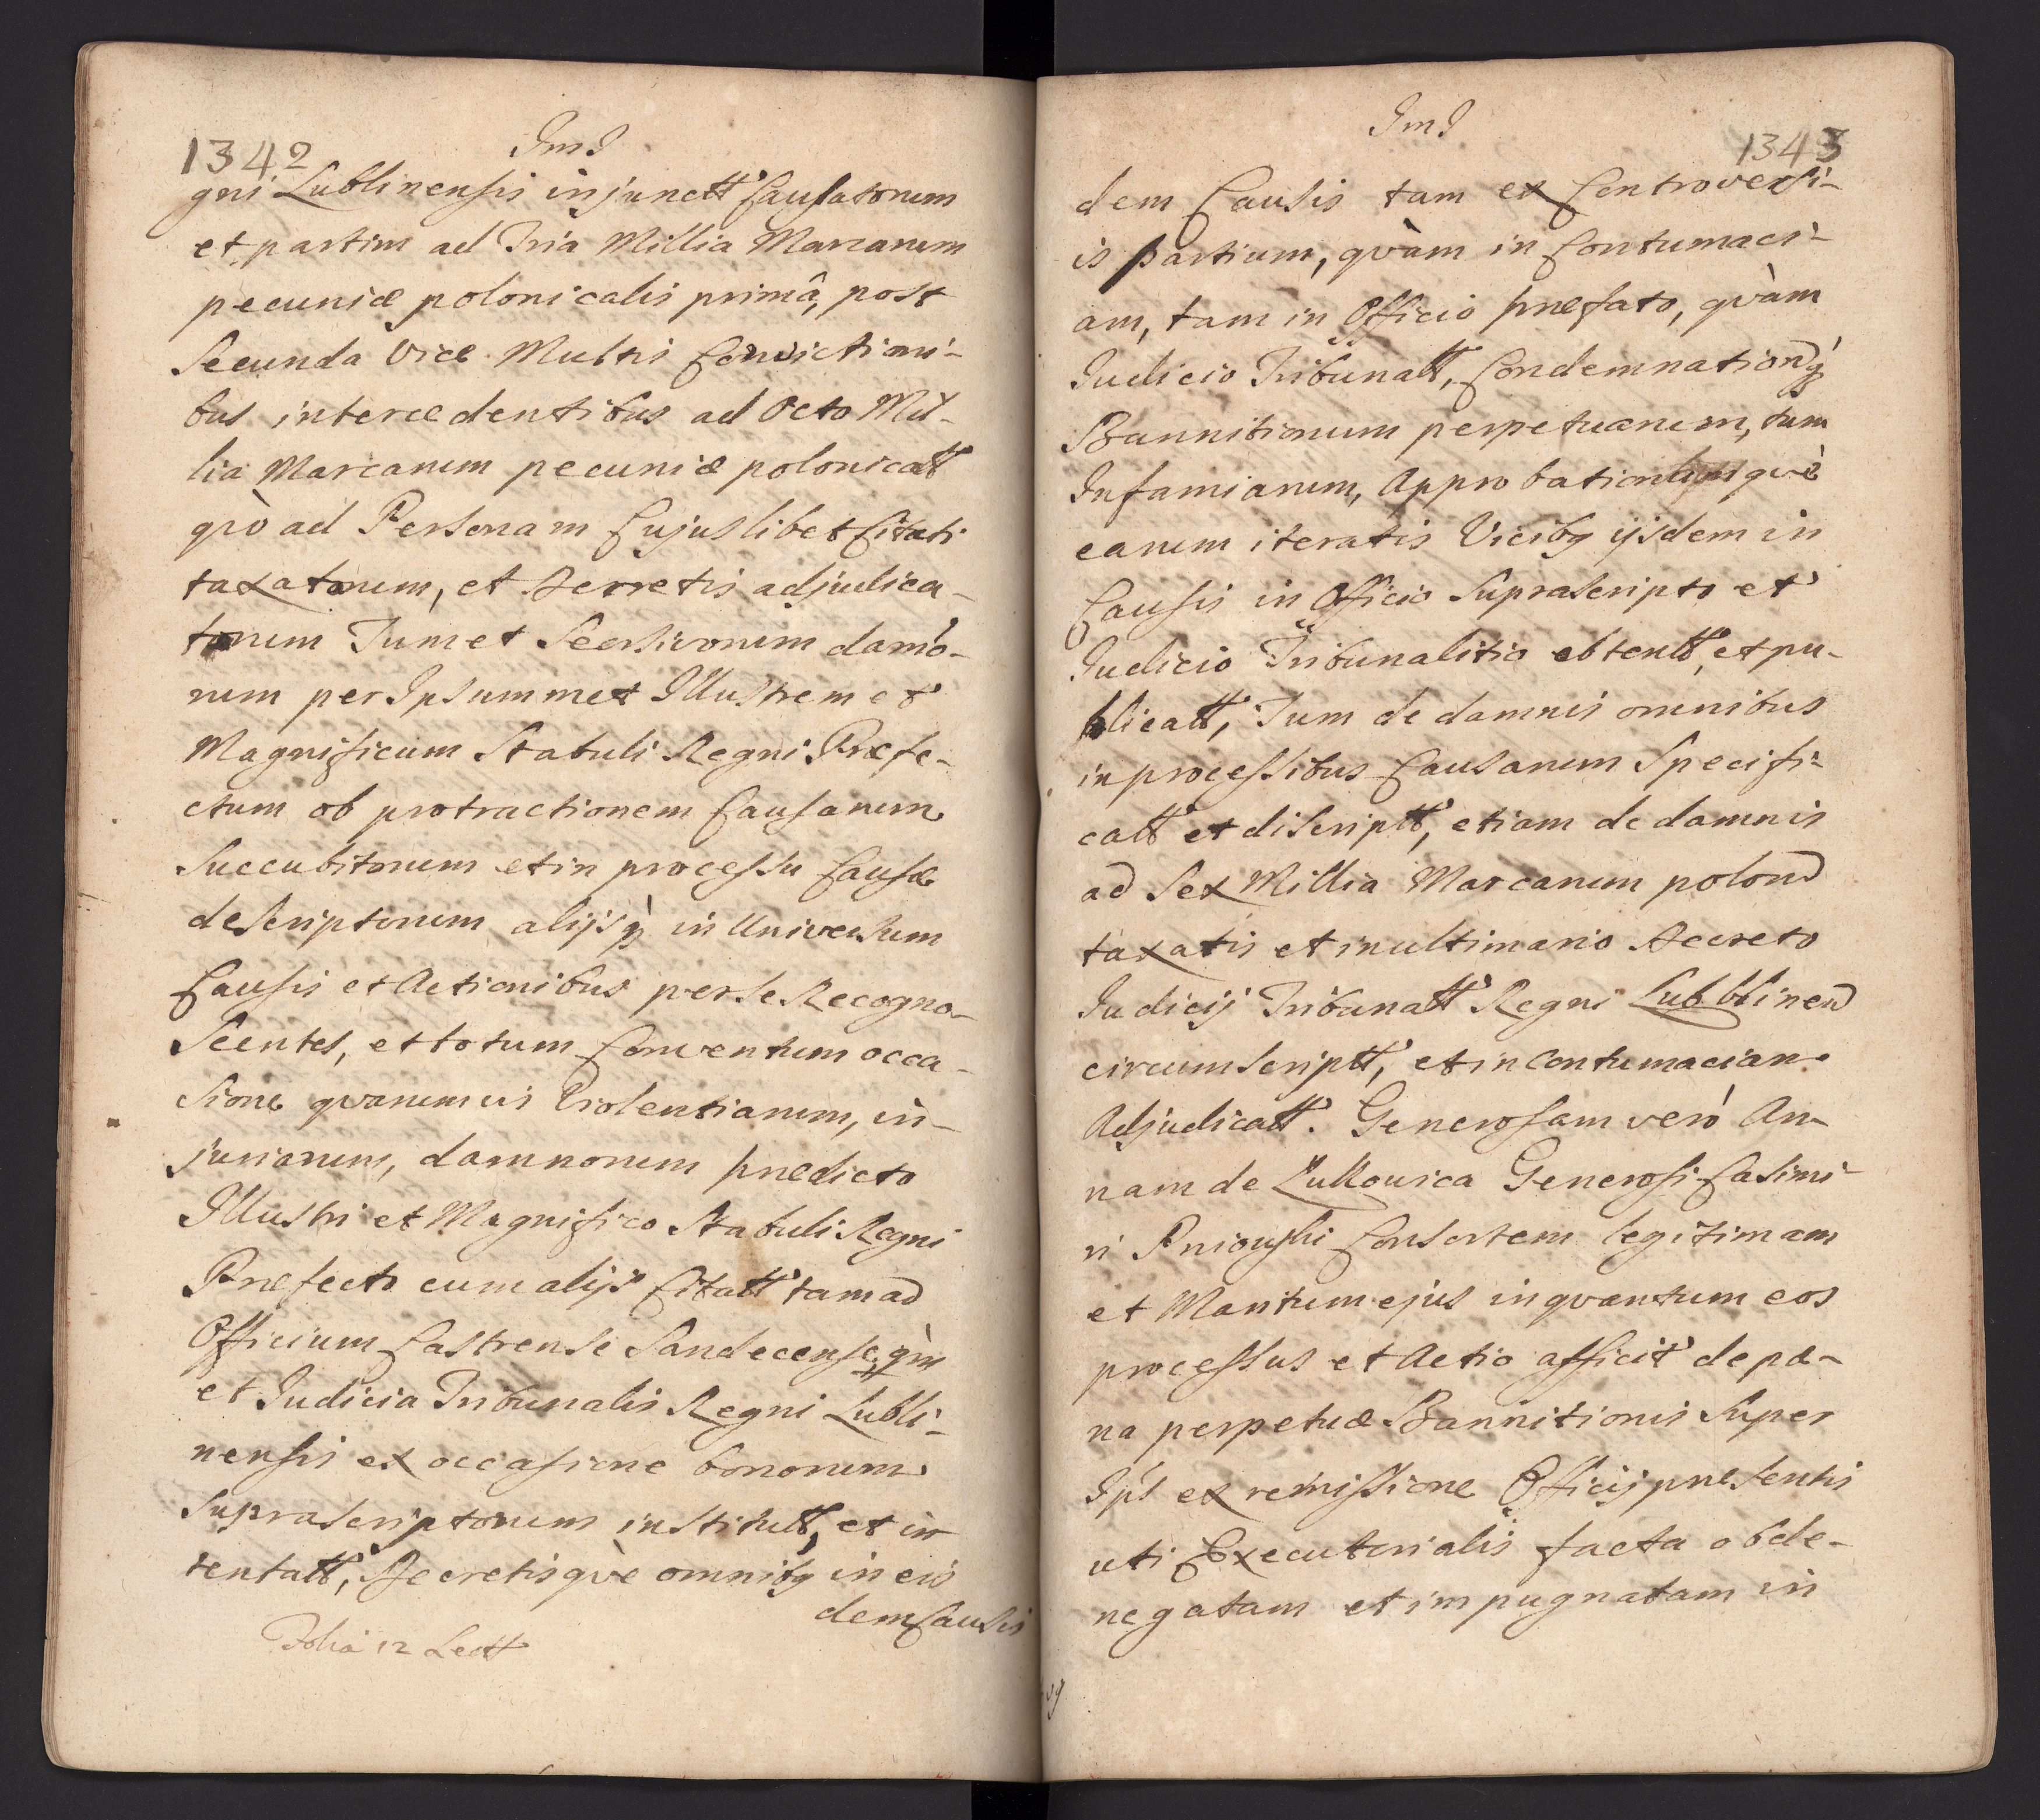 1342
ImI
gni Lublinensis injunctt Causatorum
et partim ad Tria Millia Marcarum
pecuniæ polonicalis primâ, post
Secunda Vice Multis Convictioni-
bus intercedentibus ad Octo Mil-
lia Marcarum pecuniæ polonicatt
qvò ad Personam Cujuslibet Citati
taxatorum, et Decretis adjudica-
torum Tum et Secusivorum damno-
rum per Ipsummet Illustrem et
Magnificum Stabuli Regni Præfe-
ctum ob protractionem Causarum
Succubitorum et in processu Causæ
descriptorum alijsq; in Universum
Causis et Actionibus per se Recogno-
Scentes, et totum Conventum occa-
Sione qvarumvis Violentiarum, in-
juriarum, damnorum prædicto
Illustri et Magnifico Stabuli Regni
Præfecto cum alijs Citatt tam ad
Officium Castrense Sandecense qm
et Judicia Tribunalis Regni Lubli-
nensis ex occasione bonorum
Suprascriptorum institutt, et in
tentatt, Decretisqvè omnibq in eis
dem Causis
Folia 12 Lectt
ImI
1343
dem Causis tam ex Controversi-
is partium, qvàm in Contumaci-
am, tam in Officio præfato, qvàm
Judicio Tribunatt, Condemnationq;
Bannitionum perpetuarum, tum
Infamiarum, Approbationumqvè
earum iteratis Vicibq ijsdem in
Causis in Officio Suprascripto et
Judicio Tribunalitio obtentt, et pu-
blicatt, Tum de damnis omnibus
in processibus Causarum Specifi-
catt et discriptt, etiam de damnis
ad Sex Millia Marcarum polon
taxatis et in ultimario Decreto
Judicij Tribunatt Regni Lubblinen
circumscriptt, et in Contumaciam
Adjudicatt. Generosam verò An-
nam de Zukowica Generosi Casimi-
ri Consortem legitimam
et Maritum ejus inqvantum eos
processus et Actio afficit de pæ-
na perpetuæ Bannitionis Super
Ips ex remissione Officij præsentis
uti Executorialis facta obde-
negatam et impugnatam in